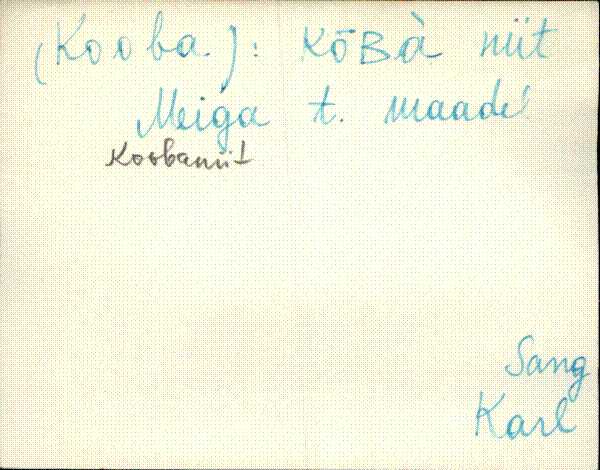 (Kooba.): KōBà niit
Meiga t. maadel
Koobaniit
Sang
Karl